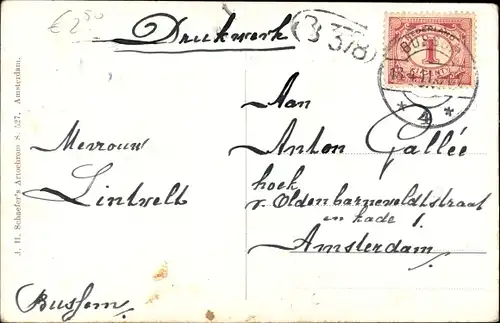 €2⁵⁰
Drukwerk
B 378
NEDERLAND
1
BUSSUM
4
Aan
Anton Gallée
hoek
v. Oldenbarneveldtstraat
en kade 1.
Amsterdam
Mevrouw
Lintvelt
Bussem
J. H. Schaefer's Artochrom S. 527. Amsterdam.